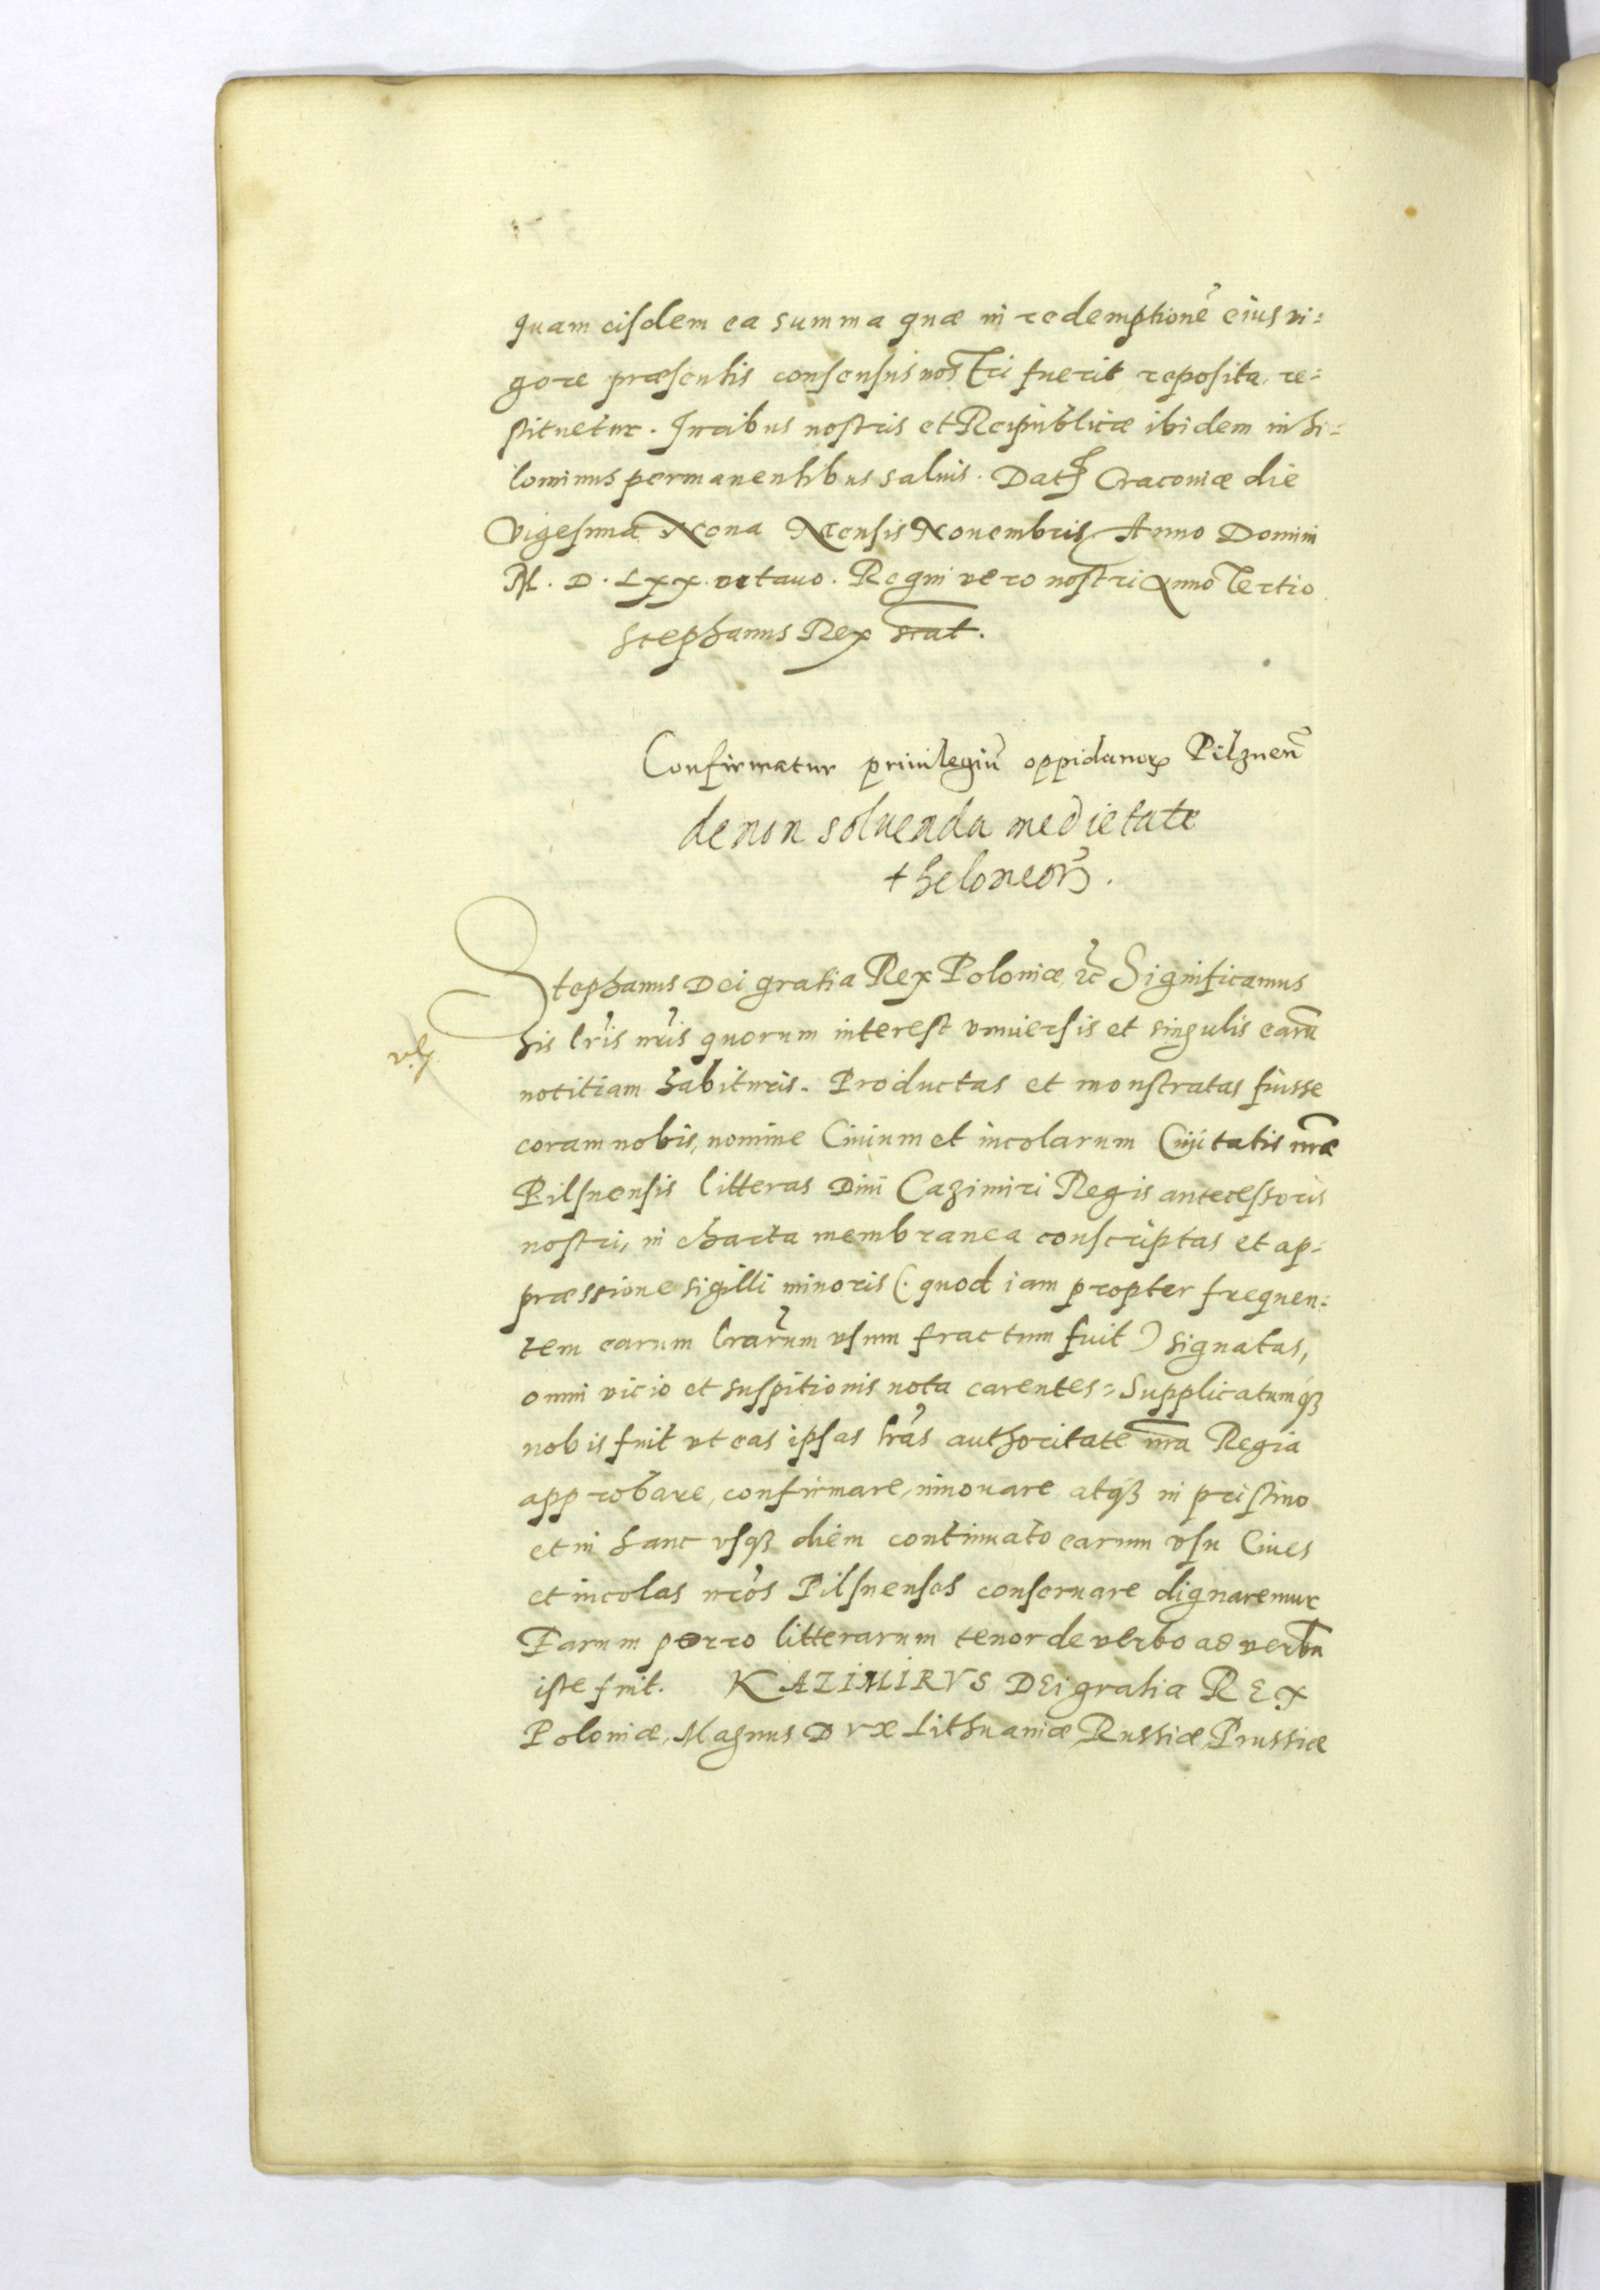 quam eisdem ea summa quæ in redemptionẽ eius vi=
gore præsentis consensus nostri fuerit reposita re=
stituetur. Iuribus nostris et Reipublicæ ibidem nihi=
lominus permanentibus saluis. Dat Cracouiæ die
Vigesima Nona Mensis Nouembris Anno Domini
M. D. Lxx. octauo. Regni vero nostri Anno Tertio
Stephanus Rex sat.
Confirmatur priuilegiũ oppidanoꝝ Pilznen̄
de non soluenda medietate
theloneoꝝ.
Stephanus Dei gratia Rex Poloniæ, ꝛc Significamus
his lr̃is nr̃is quorum interest vniuersis et singulis earũ
notitiam habituris. Productas et monstratas fuisse
coram nobis, nomine Ciuium et incolarum Ciuitatis nr̃æ
Pilsnensis litteras Diui Cazimiri Regis antecessoris
nostri, in charta membranea conscriptas et ap=
præssione sigilli minoris (: quod iam propter frequen=
tem earum lrãrum vsum fractum fuit) signatas,
omni vicio et suspitionis nota carentes = Supplicatumqꝫ
nobis fuit vt eas ipsas lrãs authoritate nr̃a Regia
approbare, confirmare, innouare atqꝫ in pristino
et in hanc vsqꝫ diem continuato earum vsu Ciues
et incolas nrõs Pilsnenses conseruare dignaremur
Earum porro litterarum tenor de verbo ad verbũ
iste fuit. KAZIMIRVS DEi gratia REX
Poloniæ, Magnus DVx Lithuaniæ, Russiæ, Prussiæ